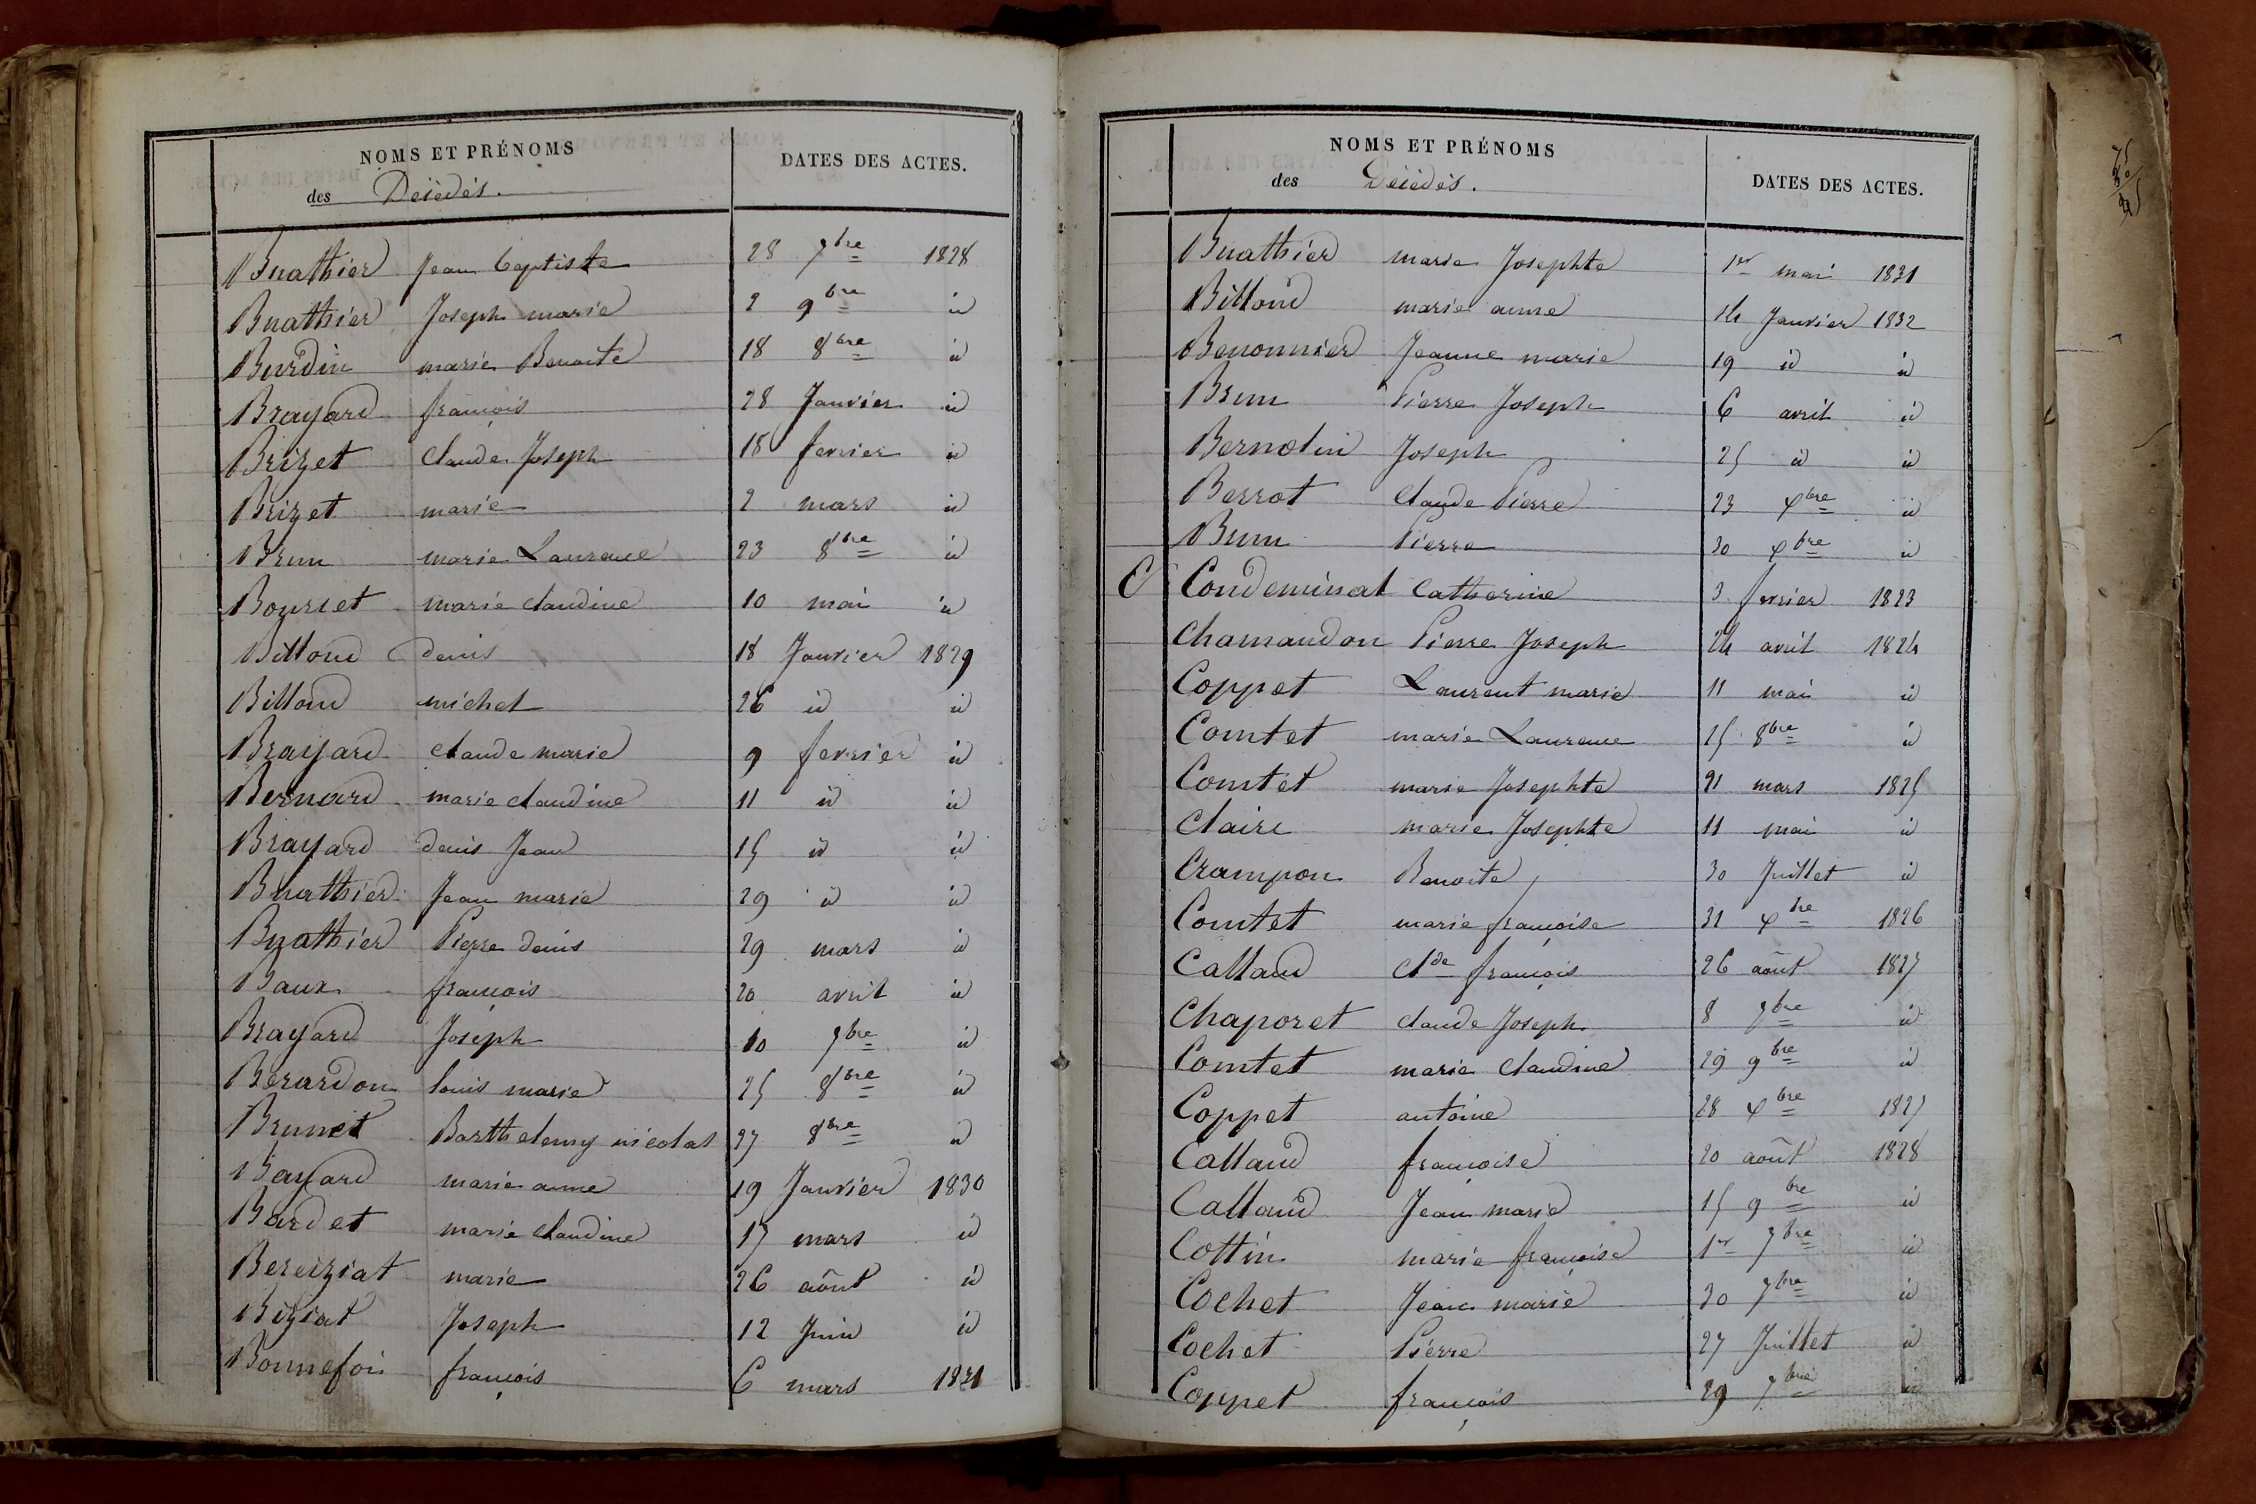 NOMS ET PRÉNOMS
des Décédés.
DATES DES ACTES.
Buathier Jean Baptiste 28 7bre 1828
Buathier Joseph marie 2 9bre id
Burdin marie Benoite 18 8bre id
Brayard françois 28 Janvier id
Brizet Claude Joseph 18 fevrier id
Brizet marie 2 mars id
Brun marie Laurence 23 8bre id
Bourcet marie claudine 10 mai id
Billoud denis 18 Janvier 1829
Billoud michel 26 id id
Brayard claude marie 9 fevrier id
Bernard marie claudine 11 id id
Brayard denis Jean 15 id id
Buathier Jean marie 29 id id
Buathier Pierre denis 29 mars id
Baux françois 20 avril id
Brayard Joseph 10 7bre id
Berardon louis marie 25 8bre id
Brunet Barthelemy nicolas 27 8bre id
Bayard marie anne 19 Janvier 1830
Bardet marie claudine 17 mars id
Bereiziat marie 26 août id
Biziat Joseph 12 Juin id
Bonnefoi françois 6 mars 1831
NOMS ET PRÉNOMS
des Décédés.
DATES DES ACTES.
Buathier marie Josephte 1er mai 1831
Billoud marie anne 14 Janvier 1832
Benonnier Jeanne marie 19 id id
Brun Pierre Joseph 6 avril id
Bernolin Joseph 25 id id
Berrot Claude Pierre 23 xbre id
Brun Pierre 30 xbre id
C Condeminal Catherine 3 fevrier 1823
Chamandon Pierre Joseph 24 avril 1824
Coppet Laurent marie 11 mai id
Comtet marie Laurence 15 8bre id
Comtet marie Josephte 21 mars 1825
Claire marie Josephte 11 mai id
Crampon Benoite 30 Juillet id
Comtet marie françoise 31 xbre 1826
Calland Clde françois 26 août 1827
Chaporet claude Joseph 8 7bre id
Comtet marie Claudine 29 9bre id
Coppet antoine 28 xbre 1827
Calland françoise 20 août 1828
Calland Jean marie 15 9bre id
Cottin marie françoise 1er 7bre id
Cochet Jean marie 30 7bre id
Cochet Pierre 27 Juillet id
Coppet françois 29 7bre id